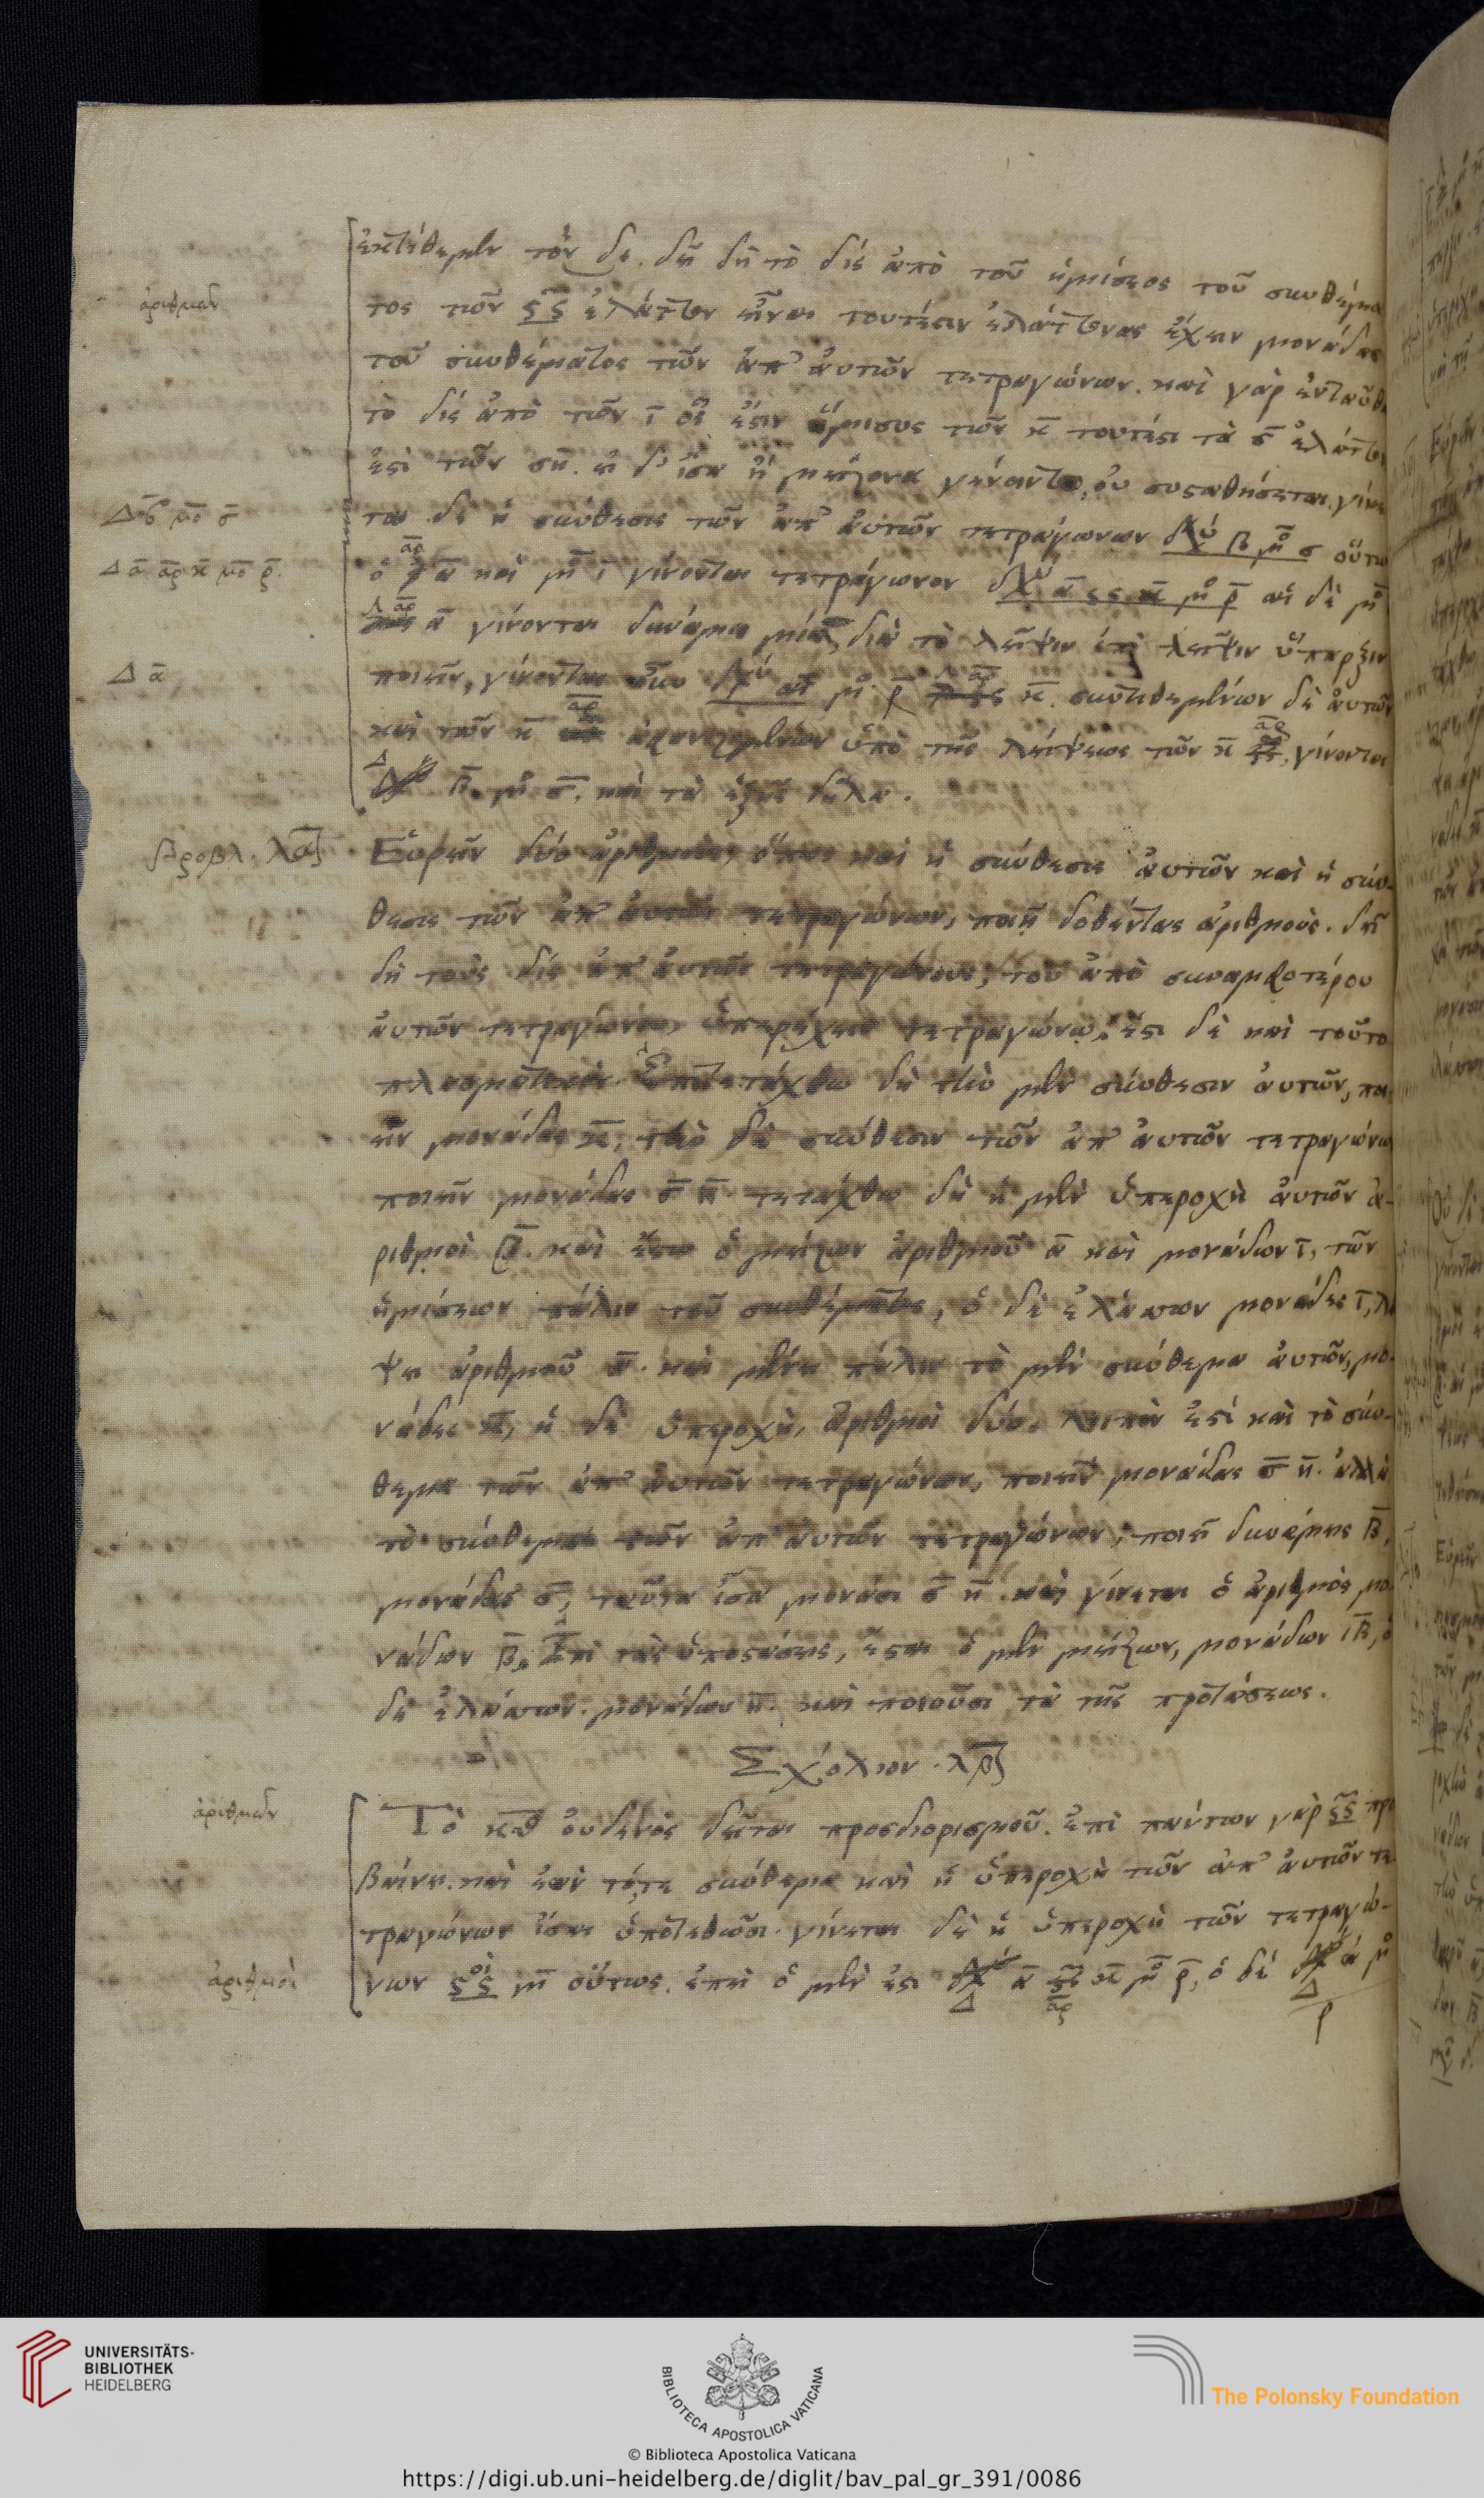 ἐκτίθεμεν τὸν δε. δεῖ δὴ τὸ δὶς ἀπὸ τοῦ ἡμίσεος τοῦ συνθέμα
ἀριθμῶν
τος τῶν ςς ἐλάττον εἶναι τουτέστιν ἐλάττονας ἔχειν μονάδας
τοῦ συνθέματος τῶν ἀπ' αὐτῶν τετραγώνων. καὶ γὰρ ἐνταῦθα
τὸ δὶς ἀπὸ τῶν ι οἵ εἰσιν ἥμισυς τῶν κ τουτέστι τὰ σ ἐλάττον
ἐστι τῶν ση. εἰ δ' ἴσα ἢ μείζονα γένοιντο, οὐ συσταθήσεται. γίνε
Δ β μο σ
ται δὲ ἡ σύνθεσις τῶν ἀπ' αὐτῶν τετραγώνων δυ β μο σ οὕτω
Δ α αρ κ μο ρ.
ὁ αρ α καὶ μο ι γίνονται τετράγωνον δυ α ςς κ μο ρ αἱ δὲ μο
α γίνονται δυνάμεις μία, διὰ τὸ λεῖψιν ἐπὶ λεῖψιν ὕπαρξιν
Δ α
ποιεῖν, γίνονται μο ρ κ. συντιθεμένων δὲ αὐτῶν
καὶ τῶν κ αρ ἀφανιζομένων ὑπὸ τῆς λείψεως τῶν κ αρ, γίνονται
Δ β. μο σ. καὶ τὰ ἑξῆς δῆλα.
προβλ. λα
Εὑρεῖν δύο ἀριθμοὺς, ὅπως καὶ ἡ σύνθεσις αὐτῶν καὶ ἡ σύν-
θεσις τῶν ἀπ' αὐτῶν τετραγώνων, ποιῇ δοθέντας ἀριθμούς. δεῖ
δὴ τοὺς δὶς ἀπ' αὐτῶν τετραγώνους, τοῦ ἀπὸ συναμφοτέρου
αὐτῶν τετραγώνου, ὑπερέχειν τετραγώνῳ. ἔστι δὲ καὶ τοῦτο
πλασματικόν. Ἐπιτετάχθω δὴ τὴν μὲν σύνθεσιν αὐτῶν, ποι
εῖν μονάδας κ, τὴν δὲ σύνθεσιν τῶν ἀπ' αὐτῶν τετραγώνων
ποιεῖν μονάδας σ η τετάχθω δὴ ἡ μὲν ὑπεροχὴ αὐτῶν ἀ-
ριθμοὶ β. καὶ ἔστω ὁ μείζων ἀριθμοῦ α καὶ μονάδων ι, τῶν
ἡμίσεων πάλιν τοῦ συνθέματος, ὁ δὲ ἐλάσσων μονάδες ι, λεί
ψει ἀριθμοῦ α. καὶ μένει πάλιν τὸ μὲν σύνθεμα αὐτῶν, μο-
νάδες κ, ἡ δὲ ὑπεροχὴ, ἀριθμοὶ δύο. λοιπόν ἐστι καὶ τὸ σύν-
θεμα τῶν ἀπ' αὐτῶν τετραγώνων, ποιεῖν μονάδας σ η. ἀλλὰ
τὸ σύνθεμα τῶν ἀπ' αὐτῶν τετραγώνων, ποιεῖ δυνάμεις β,
μονάδας σ, ταῦτα ἴσα μονάσι σ η καὶ γίνεται ὁ ἀριθμὸς μο-
νάδων β, Ἐπὶ τὰς ὑποστάσεις, ἔσται ὁ μὲν μείζων, μονάδων ιβ, ὁ
δὲ ἐλάσσων. μονάδων η. καὶ ποιοῦσι τὰ τῆς προτάσεως.
Σχόλιον. λβ
ἀριθμῶν
Τὸ κθ οὐδενὸς δεῖται προσδιορισμοῦ. ἐπὶ πάντων γὰρ ςς προ
βαίνει. καὶ ἐὰν τό, τε σύνθεμα καὶ ἡ ὑπεροχὴ τῶν ἀπ' αὐτῶν τε
τραγώνων ἴσαι ὑποτεθῶσι. γίνεται δὲ ἡ ὑπεροχὴ τῶν τετραγώ-
ἀριθμοὶ
νων ςοὶς μ οὕτως. ἐπεὶ ὁ μέν ἐστι Δ α αρ κ μο ρ, ὁ δὲ Δ α μο
ρ
UNIVERSITÄTS-
BIBLIOTHEK
HEIDELBERG
BIBLIOTECA APOSTOLICA VATICANA
The Polonsky Foundation
© Biblioteca Apostolica Vaticana
https://digi.ub.uni-heidelberg.de/diglit/bav_pal_gr_391/0086